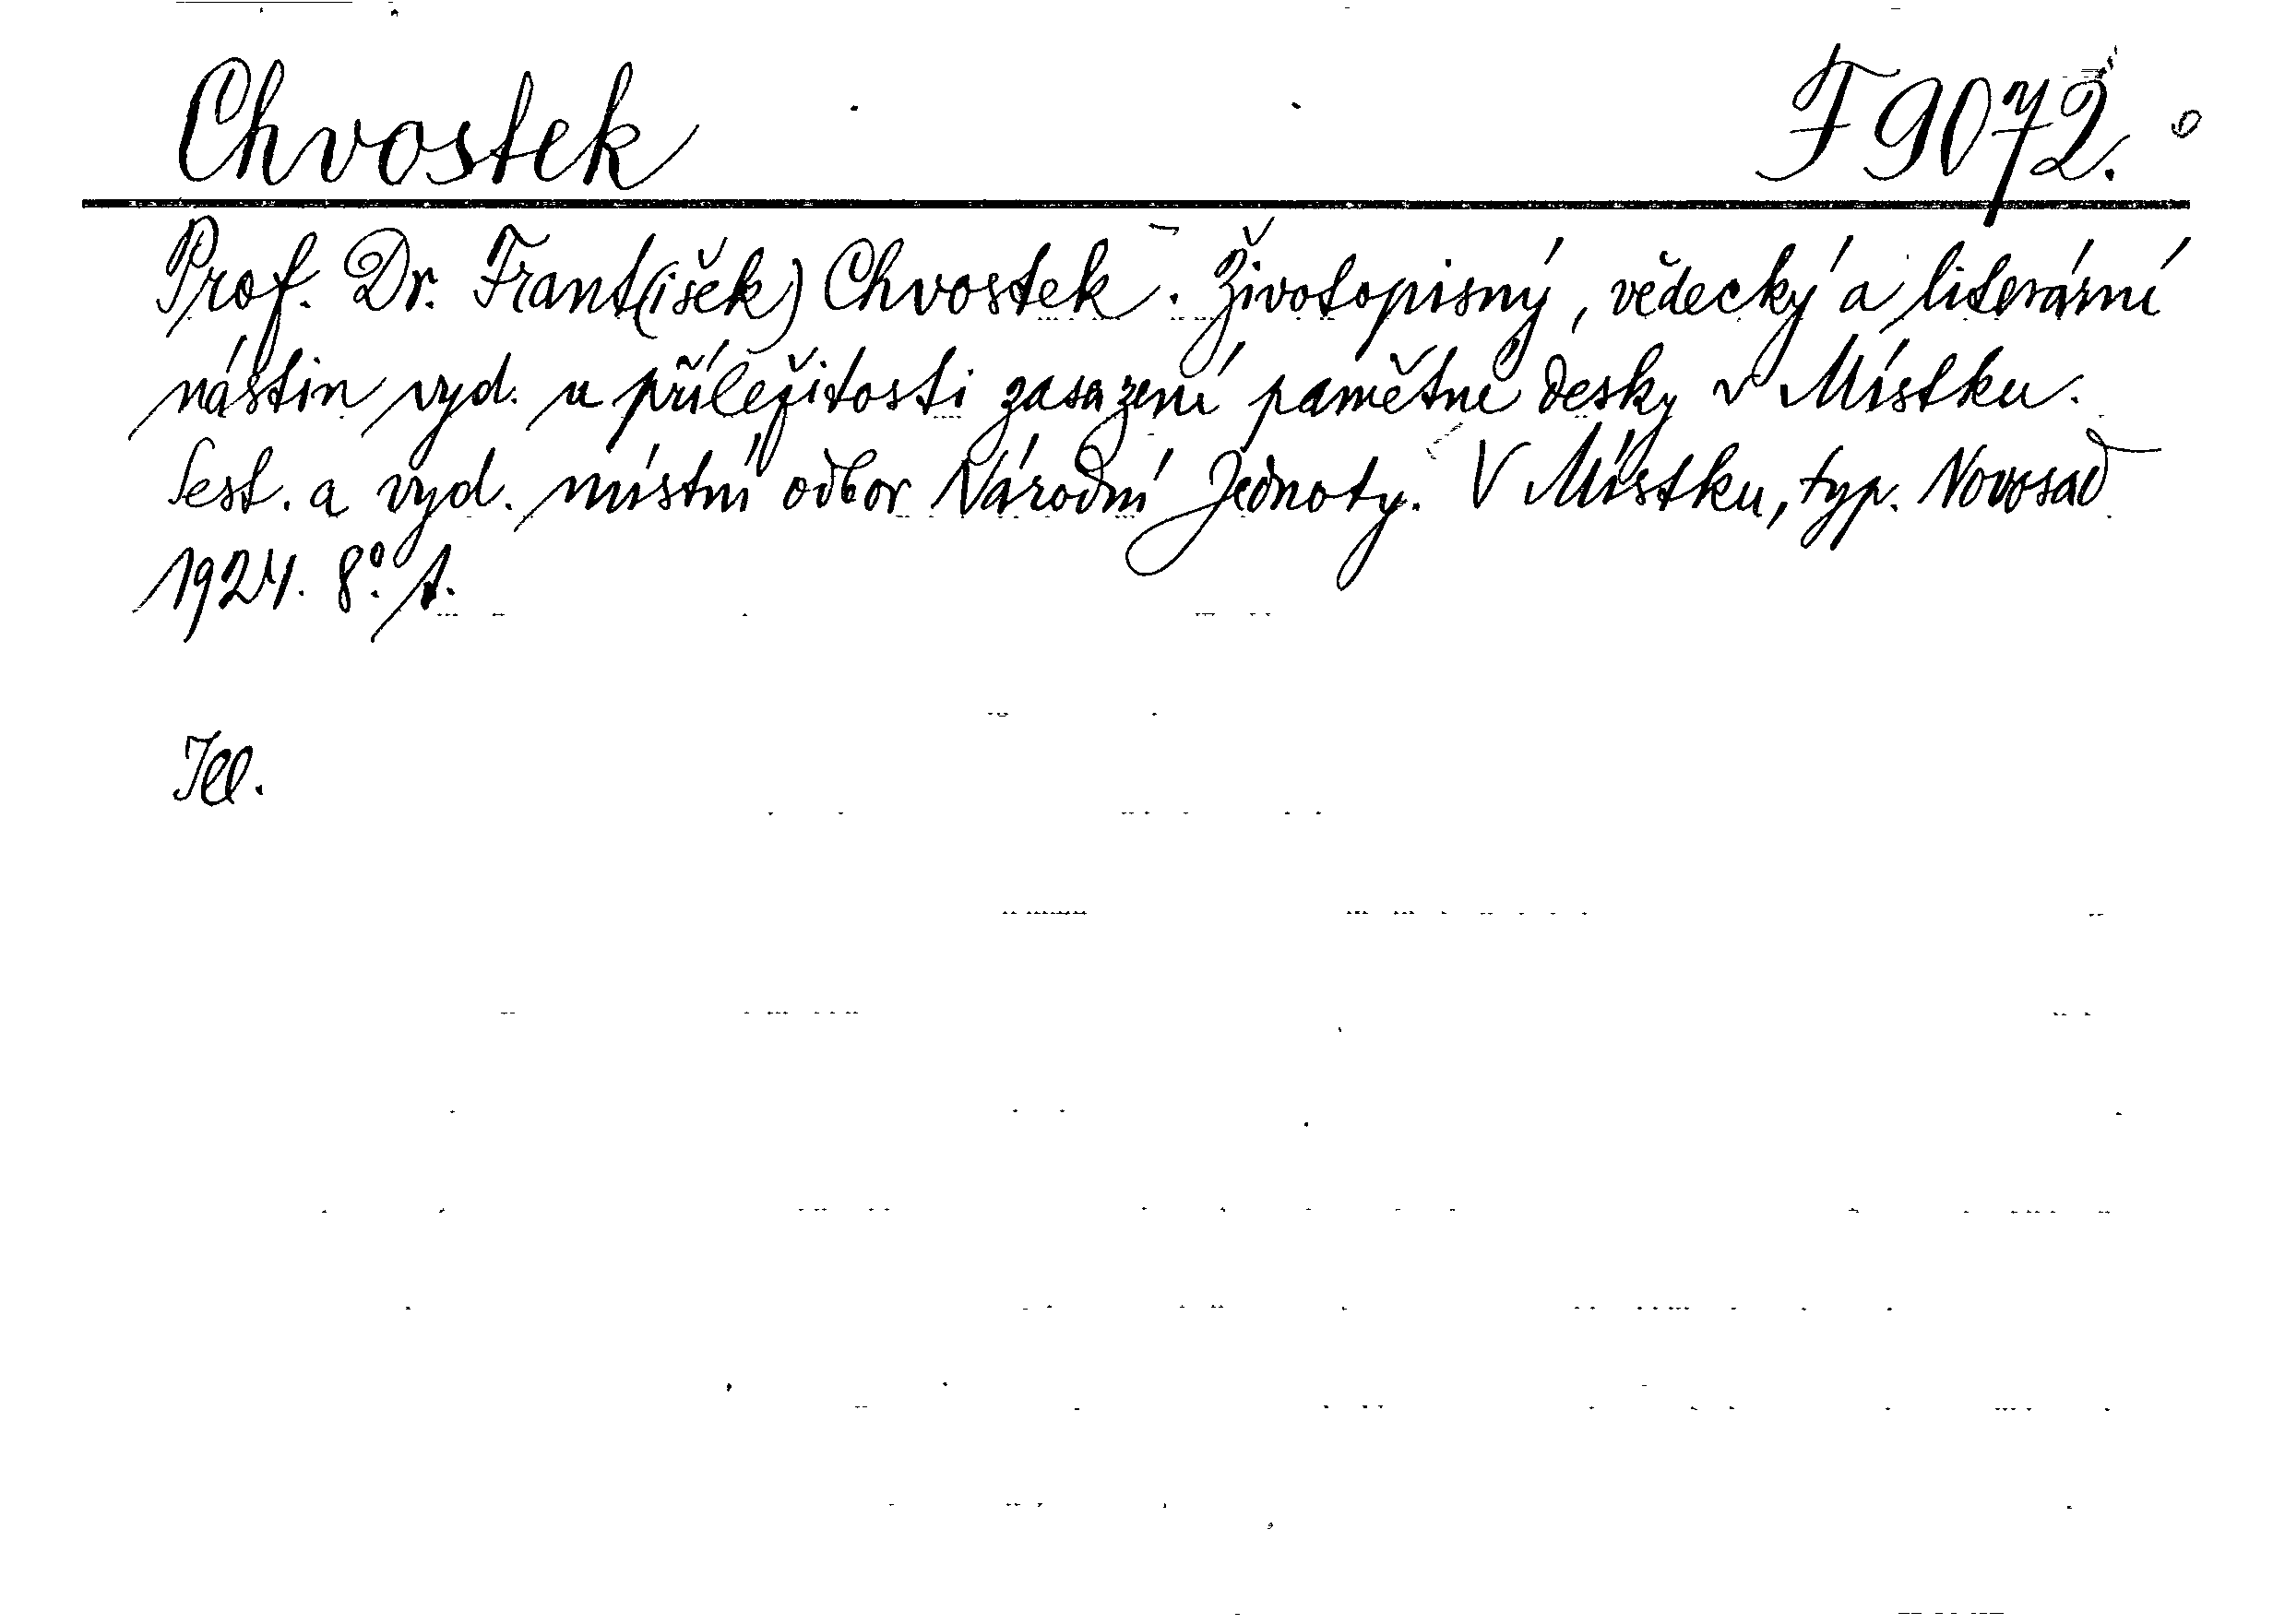 Chvostek F 9072.
Prof. Dr. Frant(išek) Chvostek. Životopisný, vědecký a literární
nástin vyd. u příležitosti zasazení pamětní desky v Místku.
Sest. a vyd. místní odbor Národní Jednoty. V Místku, typ. Novosad
1924. 8°. 1.
Ill.